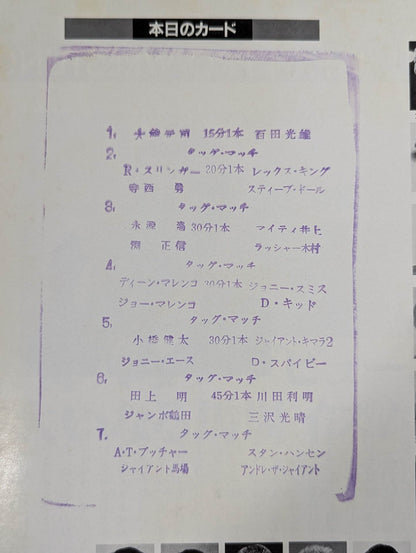 本日のカード
1. 15分1本 百田光雄
2. タッグ・マッチ
R・スリンガー 20分1本 レックス・キング
寺西 勇 スティーブ・ドール
3. タッグ・マッチ
永源 遙 30分1本 マイティ井上
渕 正信 ラッシャー木村
4. タッグ・マッチ
ディーン・マレンコ 30分1本 ジョニー・スミス
ジョー・マレンコ D・キッド
5. タッグ・マッチ
小橋健太 30分1本 ジャイアント・キマラ2
ジョニー・エース D・スパイビー
6. タッグ・マッチ
田上 明 45分1本 川田利明
ジャンボ鶴田 三沢光晴
7. タッグ・マッチ
A・T・ブッチャー スタン・ハンセン
ジャイアント馬場 アンドレ・ザ・ジャイアント